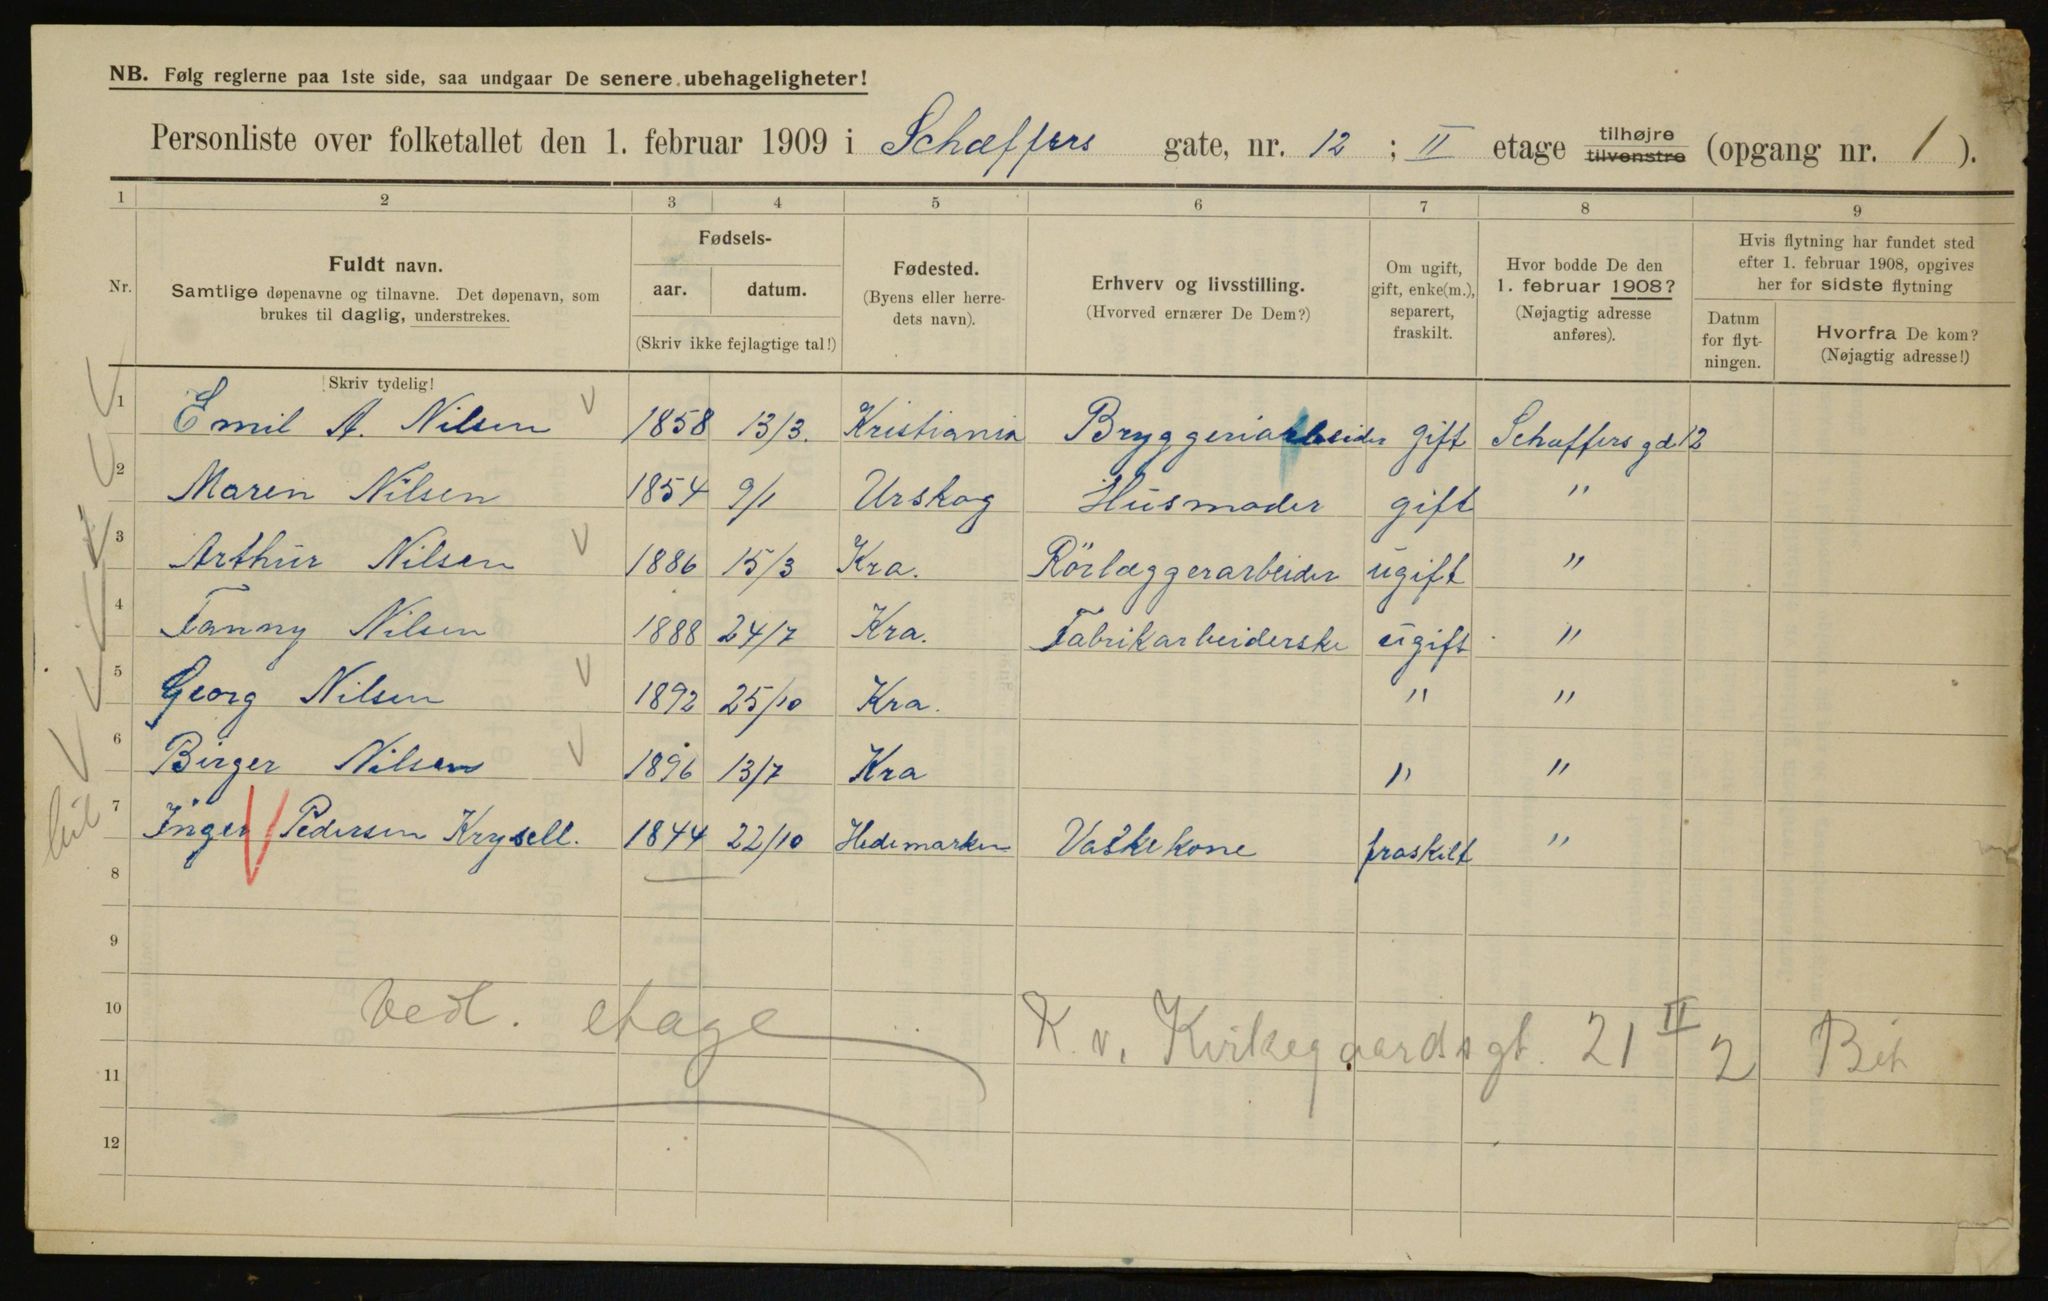 NB. Følg reglerne paa 1ste side, saa undgaar De senere ubehageligheter!
Personliste over folketallet den 1. februar 1909 i Schæffers gate, nr. 12 ; II etage tilhøjre tilvenstre (opgang nr. 1 ).
1 2 3 4 5 6 7 8 9
Nr. Fuldt navn. Samtlige døpenavne og tilnavne. Det døpenavn, som brukes til daglig, understrekes.
Fødsels-
aar. datum.
(Skriv ikke fejlagtige tal!)
Fødested. (Byens eller herre-dets navn).
Erhverv og livsstilling. (Hvorved ernærer De Dem?)
Om ugift, gift, enke(m.), separert, fraskilt.
Hvor bodde De den 1. februar 1908? (Nøjagtig adresse anføres).
Hvis flytning har fundet sted efter 1. februar 1908, opgives her for sidste flytning
Datum for flyt-ningen.
Hvorfra De kom? (Nøjagtig adresse!)
Skriv tydelig!
1 Emil A. Nilsen 1858 13/3. Kristiania Bryggeriarbeider gift Schæffers gd 12
2 Maren Nilsen 1854 9/1 Urskog Husmoder gift "
3 Arthur Nilsen 1886 15/3 Kra. Rörlæggerarbeider ugift "
4 Fanny Nilsen 1888 24/7 Kra. Fabrikarbeiderske ugift "
5 Georg Nilsen 1892 25/10 Kra. " "
6 Birger Nilsen 1896 13/7 Kra " "
7 Inger Pedersen Krysell. 1844 22/10 Hedemarken Vaskekone fraskilt "
8
9
10 Ved. etage K. v. Kirkegaardsgt. 21 II 2
11
12